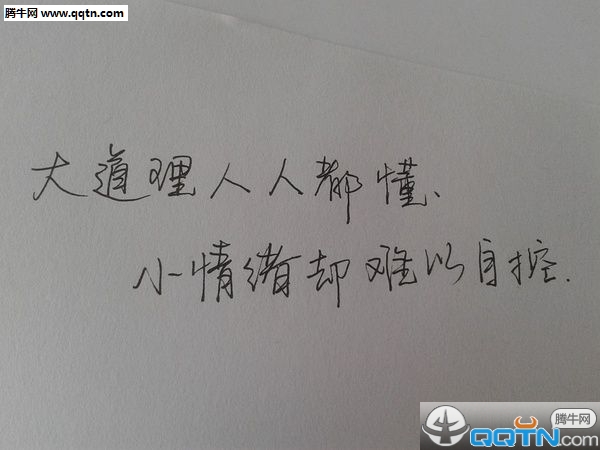 腾牛网 www.qqtn.com
大道理人人都懂、
小情绪却难以自控.
腾牛网
QQTN.com